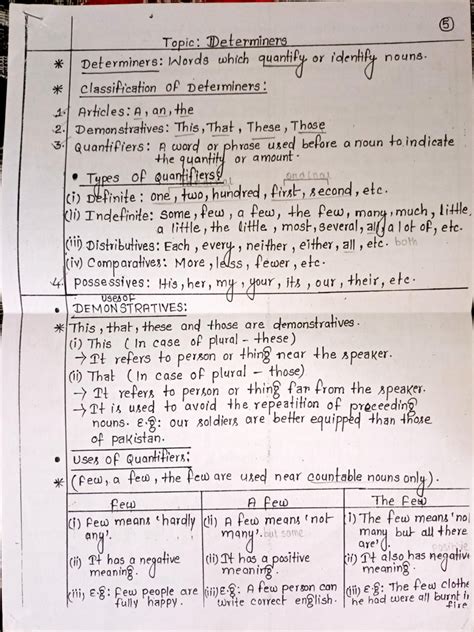 5
Topic: Determiners
* Determiners: Words which quantify or identify nouns.
* Classification of Determiners:
1. Articles: A, an, the
2. Demonstratives: This, That, These, Those
3. Quantifiers: A word or phrase used before a noun to indicate
the quantity or amount.
• Types of Quantifiers:
(i) Definite: one, two, hundred, first, second, etc.
(ii) Indefinite: some, few, a few, the few, many, much, little,
a little, the little, most, several, all, a lot of, etc.
(iii) Distributives: Each, every, neither, either, all, etc. both
(iv) Comparatives: More, less, fewer, etc.
4. Possessives: His, her, my, your, its, our, their, etc.
uses of
• DEMONSTRATIVES:
* This, that, these and those are demonstratives.
(i) This (In case of plural - these)
→ It refers to person or thing near the speaker.
(ii) That (In case of plural - those)
→ It refers to person or thing far from the speaker.
→ It is used to avoid the repeatition of proceeding
nouns. E.g: our soldiers are better equipped than those
of pakistan.
• Uses of Quantifiers:
* (few, a few, the few are used near countable nouns only).
Few A Few The Few
(i) Few means 'hardly (i) A few means 'not (i) The few means 'no
any'. many'. but some many but all there
are'.
(ii) It has a negative (ii) It has a positive (ii) It also has negative
meaning. meaning. meaning.
(iii) E.g: Few people are (iii) E.g: A few person can (iii) E.g: The few clothe
fully happy. write correct english. he had were all burnt in
fire